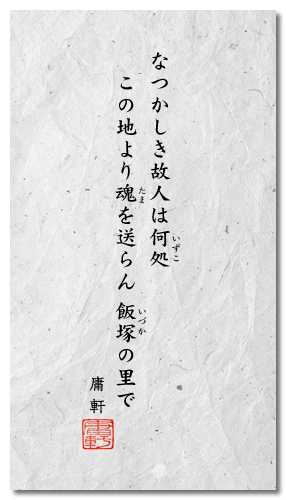 なつかしき故人は何処
いずこ
この地より魂を送らん 飯塚の里で
たま
いづか
庸軒
庸軒